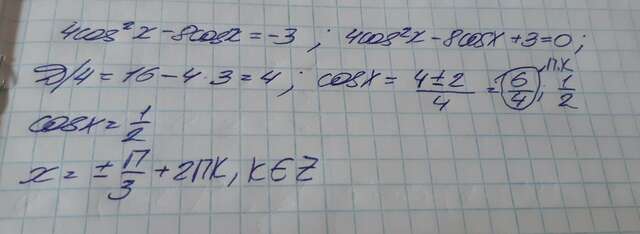 4cos²x - 8cosx = -3 ; 4cos²x - 8cosx + 3 = 0 ;
D/4 = 16 - 4·3 = 4 ; cosx = (4 ± 2)/4 = 6/4 п.к ; 1/2
cosx = 1/2
x = ± π/3 + 2πk, k ∈ Z